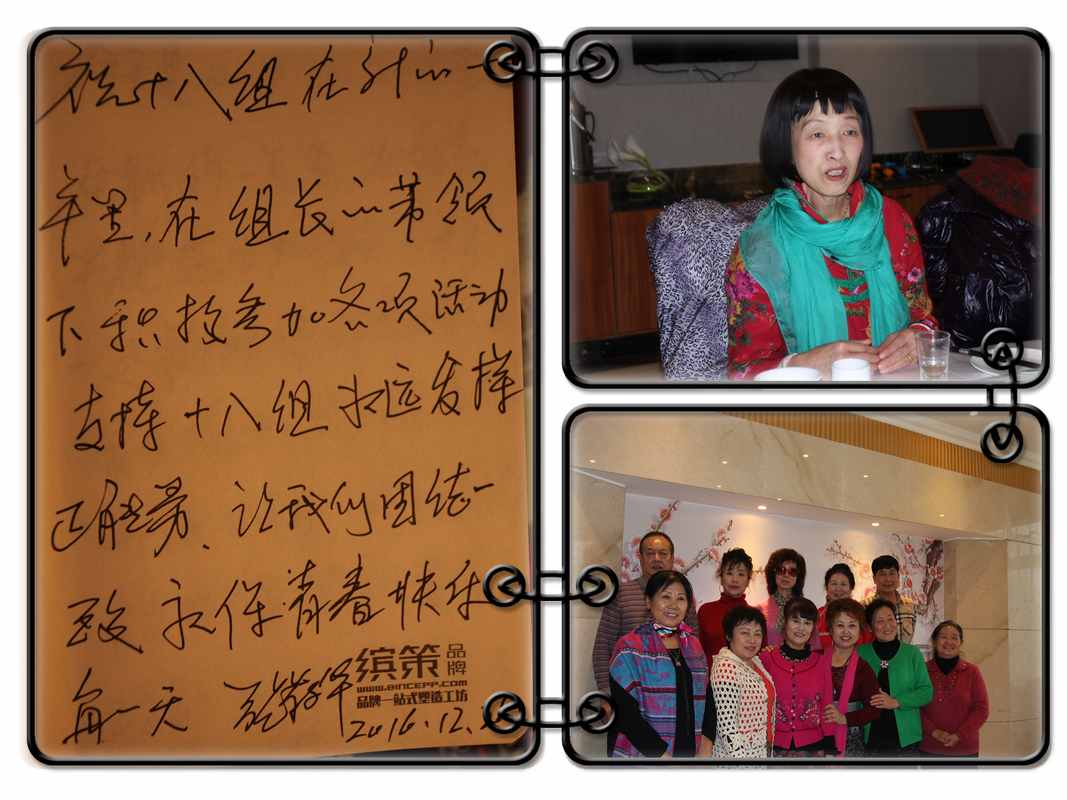 祝十八组在新的一
年里,在组长的带领
下积极参加各项活动
支持十八组永远发挥
正能量、让我们团结一
致永保青春快乐
每一天
缤策品牌
www.BINCEPP.com
品牌一站式塑造工坊
2016.12.